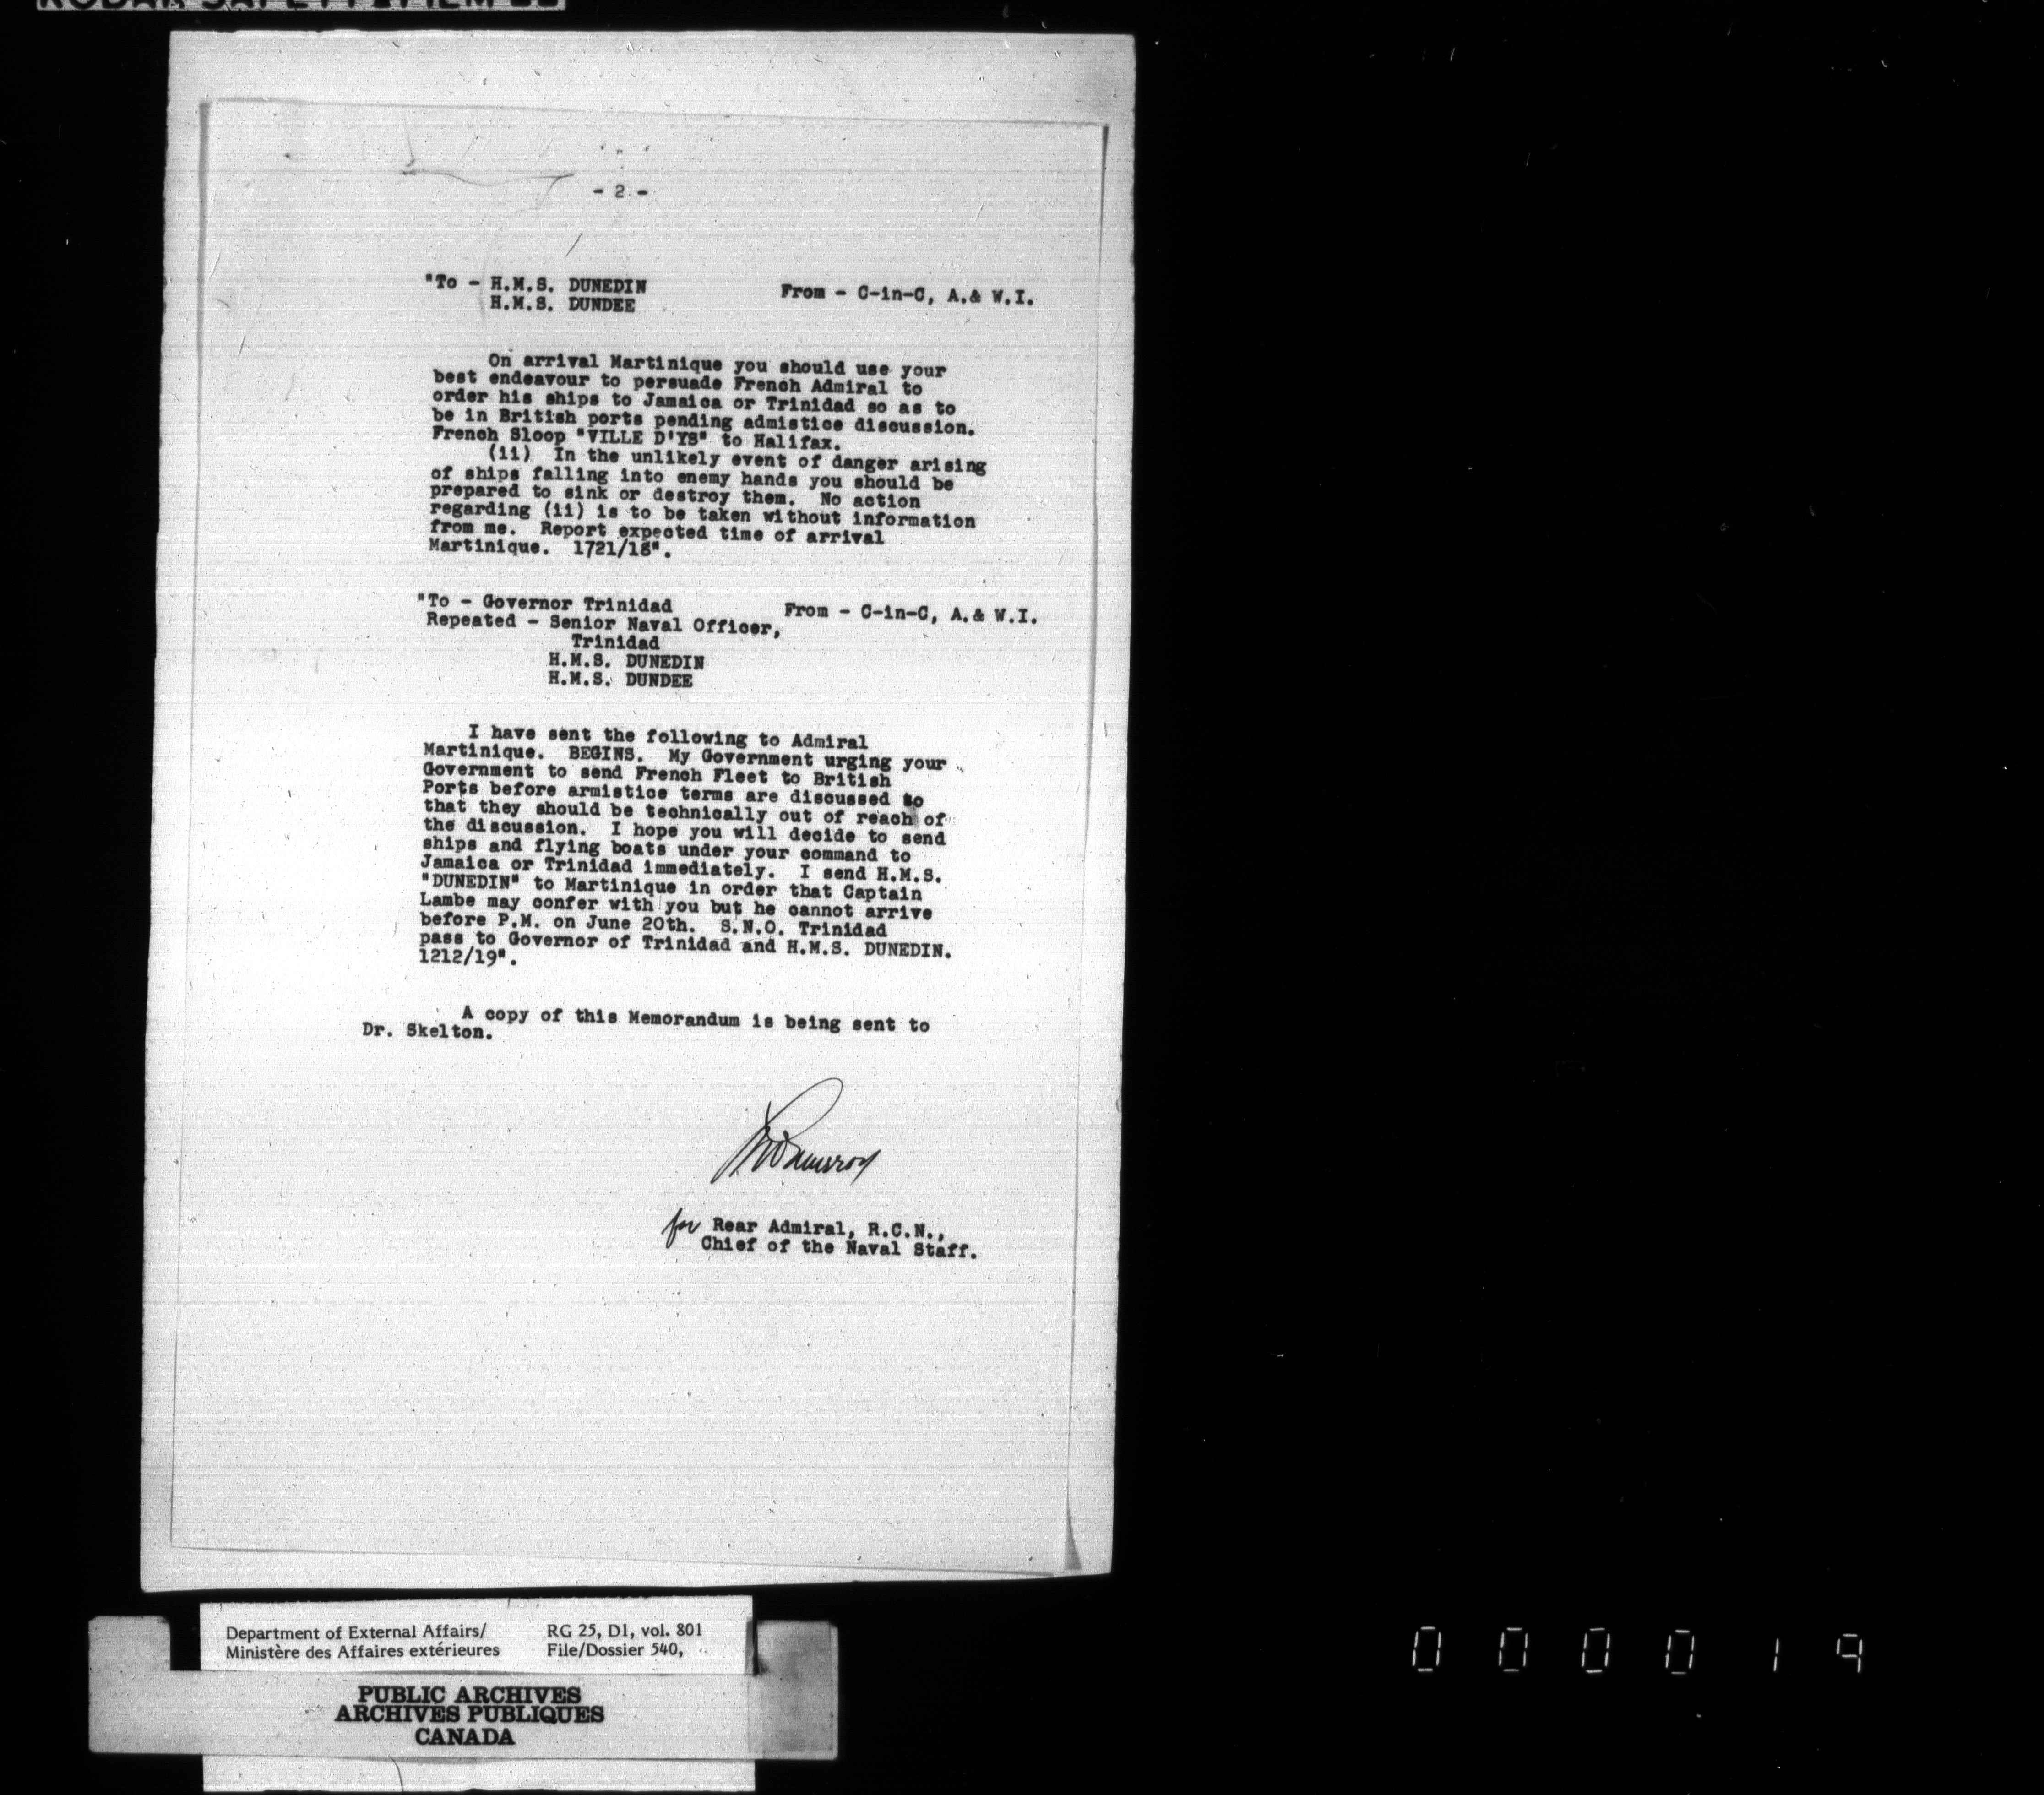 KODAK SAFETY FILM
- 2 -
"To - H.M.S. DUNEDIN From - C-in-C, A.& W.I.
H.M.S. DUNDEE
On arrival Martinique you should use your
best endeavour to persuade French Admiral to
order his ships to Jamaica or Trinidad so as to
be in British ports pending admistice discussion.
French Sloop "VILLE D'YS" to Halifax.
(ii) In the unlikely event of danger arising
of ships falling into enemy hands you should be
prepared to sink or destroy them. No action
regarding (ii) is to be taken without information
from me. Report expected time of arrival
Martinique. 1721/18".
"To - Governor Trinidad From - C-in-C, A.& W.I.
Repeated - Senior Naval Officer,
Trinidad
H.M.S. DUNEDIN
H.M.S. DUNDEE
I have sent the following to Admiral
Martinique. BEGINS. My Government urging your
Government to send French Fleet to British
Ports before armistice terms are discussed so
that they should be technically out of reach of
the discussion. I hope you will decide to send
ships and flying boats under your command to
Jamaica or Trinidad immediately. I send H.M.S.
"DUNEDIN" to Martinique in order that Captain
Lambe may confer with you but he cannot arrive
before P.M. on June 20th. S.N.O. Trinidad
pass to Governor of Trinidad and H.M.S. DUNEDIN.
1212/19".
A copy of this Memorandum is being sent to
Dr. Skelton.
for Rear Admiral, R.C.N.,
Chief of the Naval Staff.
Department of External Affairs/ RG 25, D1, vol. 801
Ministère des Affaires extérieures File/Dossier 540,
PUBLIC ARCHIVES
ARCHIVES PUBLIQUES
CANADA
0 0 0 0 1 9